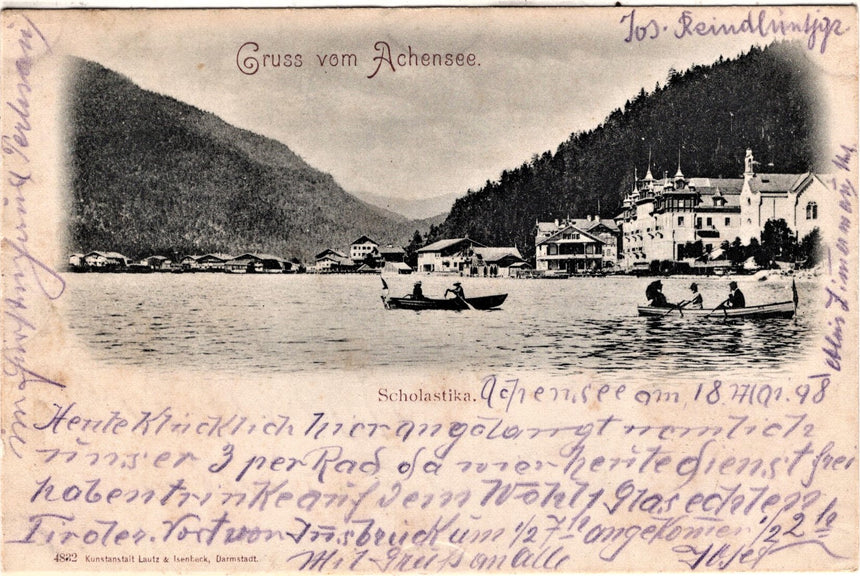 Gruss vom Achensee.
Jos.
Scholastika.
Achensee am 18. Mai. 98
Heute Klücklich hier angelangt nemlich
unser 3 per Rad da wier heute dienst frei
haben trinke auf dem Wohl 1 Glas echten
Tiroler. Vort von Insbruck um 1/2 7 h angekomen 1/2 2 h
Mit Grüß an Alle
4832 Kunstanstalt Lautz & Isenbeck, Darmstadt.